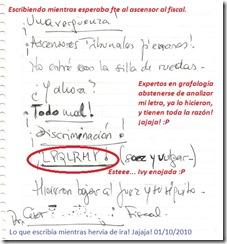 Escribiendo mientras esperaba fte al ascensor al fiscal.
¡Unavergüenza!
¡Ascensores Tribunales pequeños!
No entró con la silla de ruedas.-
¿Y ahora?
¡Todo mal!
¡Discriminación!
¡LPQLRMP! (soez y vulgar)
Hicieron bajar al juez y
Fiscal
Expertos en grafología
abstenerse de analizar
mi letra, ya lo hicieron,
y tienen toda la razón!
jajaja! :P
Esteee... Ivy enojada :P
Lo que escribía mientras hervía de ira! Jajaja! 01/10/2010